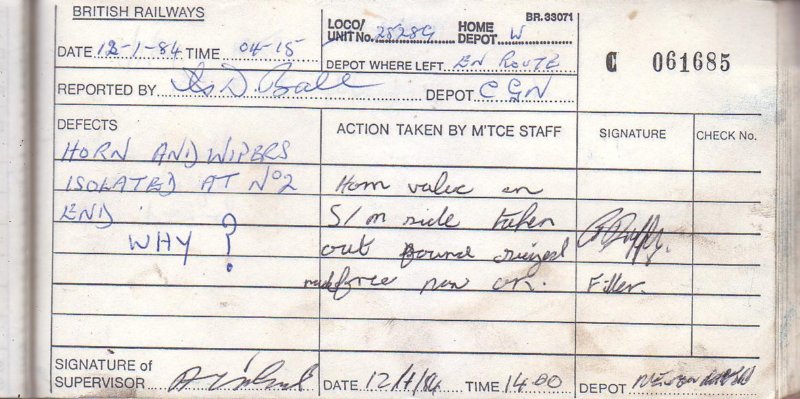 BRITISH RAILWAYS
BR.33071
LOCO/ UNIT No. 25289 HOME DEPOT W
DATE 12-1-84 TIME 04-15
DEPOT WHERE LEFT. EN ROUTE
C 061685
REPORTED BY D. Ball DEPOT CGN
DEFECTS
ACTION TAKEN BY M'TCE STAFF
SIGNATURE
CHECK No.
HORN AND WIPERS
ISOLATED AT No2
END.
WHY?
Horn valve on
S/m side taken
out found seized
made free now ok.
Fitter.
SIGNATURE of
SUPERVISOR
DATE 12/1/84 TIME 14.00 DEPOT